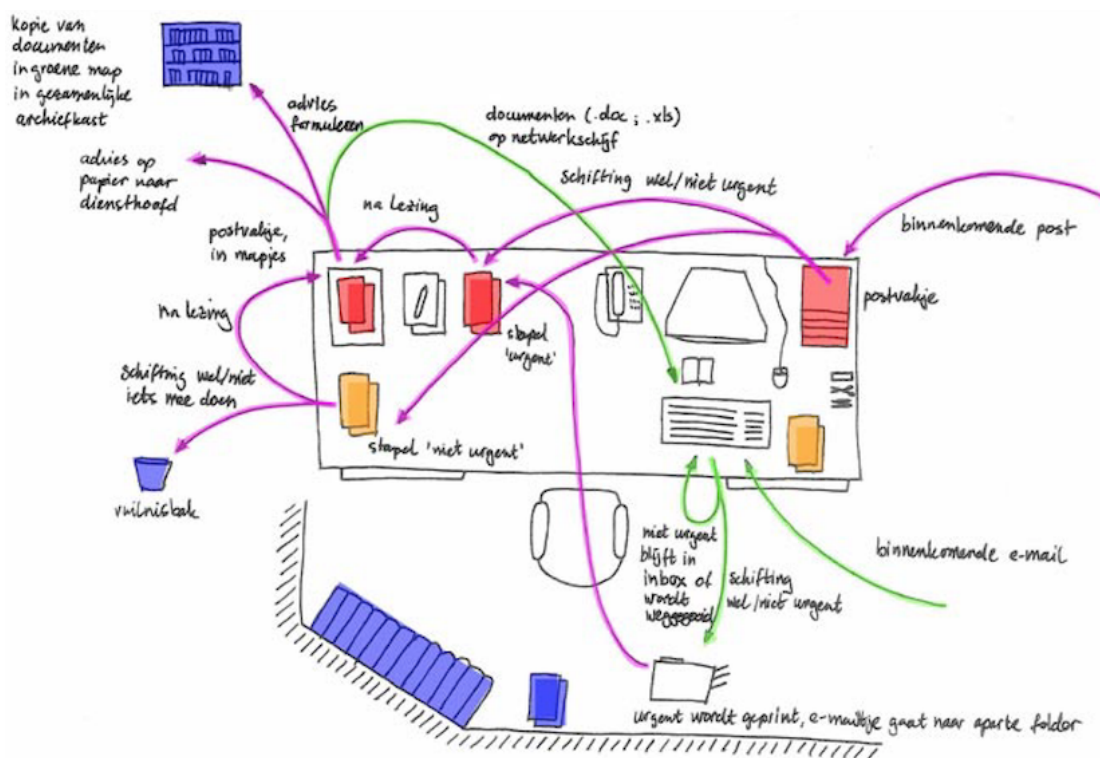 kopie van
documenten
in groene map
in gezamenlijke
archiefkast
advies
formuleren
documenten (.doc ; .xls)
op netwerkschijf
schifting wel/niet urgent
advies op
papier naar
diensthoofd
na lezing
binnenkomende post
postvakje,
in mapjes
postvakje
na lezing
stapel
'urgent'
schifting wel/niet
iets mee doen
stapel 'niet urgent'
vuilnisbak
niet urgent
blijft in
inbox of
wordt
weggegooid
schifting
wel/niet urgent
binnenkomende e-mail
urgent wordt geprint, e-mailtje gaat naar aparte folder